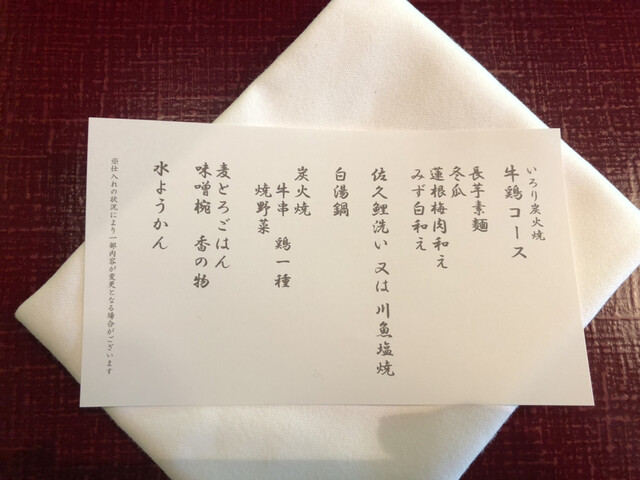 いろり炭火焼
牛鶏コース
長芋素麺
冬瓜
蓮根梅肉和え
みず白和え
佐久鯉洗い 又は 川魚塩焼
白湯鍋
炭火焼
牛串 鶏一種
焼野菜
麦とろごはん
味噌椀 香の物
水ようかん
※仕入れの状況により一部内容が変更となる場合がございます